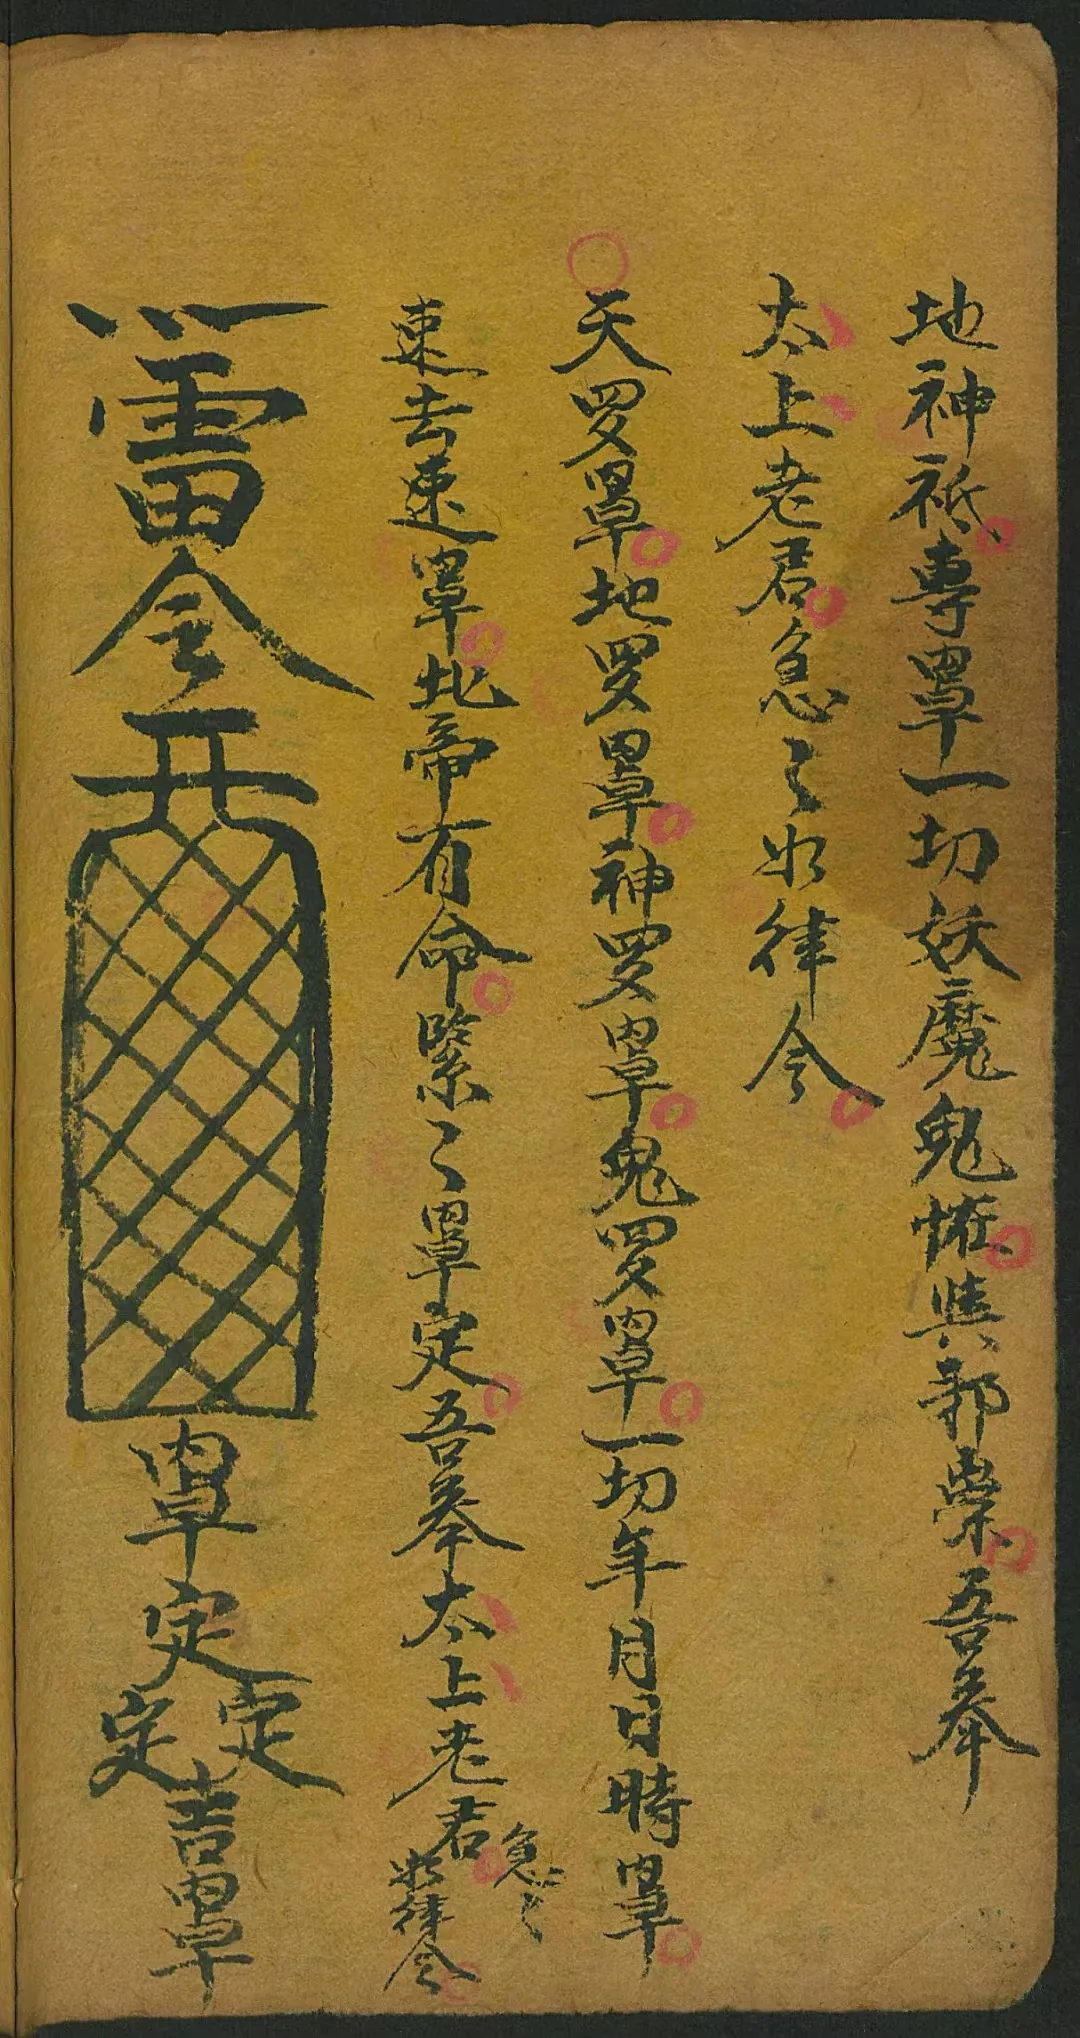 地神祇專罩一切妖魔鬼怪與邪祟吾奉
太上老君急〻如律令
天罗罩地罗罩神罗罩鬼罗罩一切年月日時罩
速去速罩北帝有命緊〻罩定吾奉太上老君急〻如律令
雷令
罩定定定吉罩